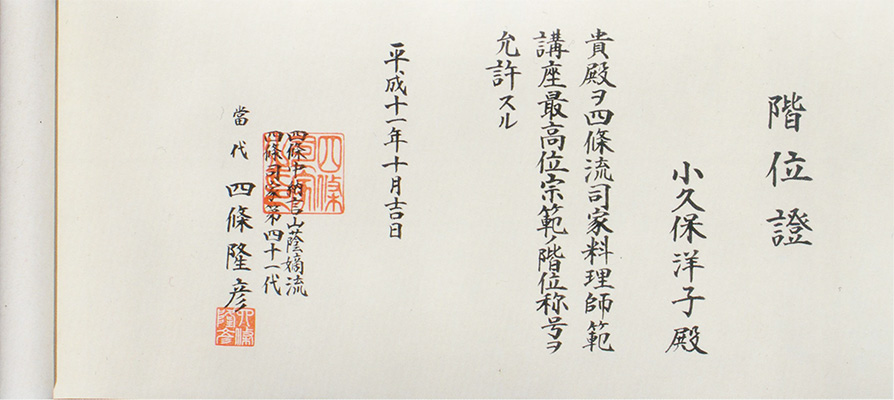 階位證
小久保洋子殿
貴殿ヲ四條流司家料理師範
講座最高位宗範ノ階位称号ヲ
允許スル
平成十一年十月吉日
四條中納言山蔭嫡流
四條司家第四十一代
當代 四條隆彦
四條隆彦